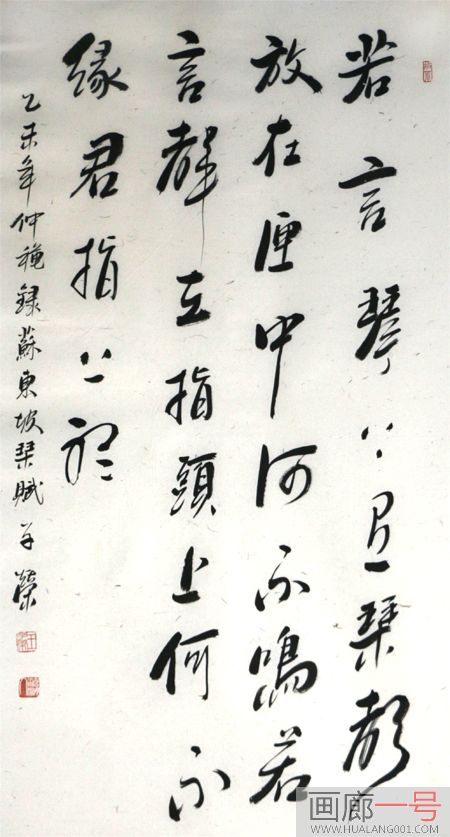 若言琴上有琴聲
放在匣中何不鳴若
言聲在指頭上何不
緣君指上聽
乙未年仲穐錄蘇東坡琴賦榮
画廊一号
WWW.HUALANG001.COM